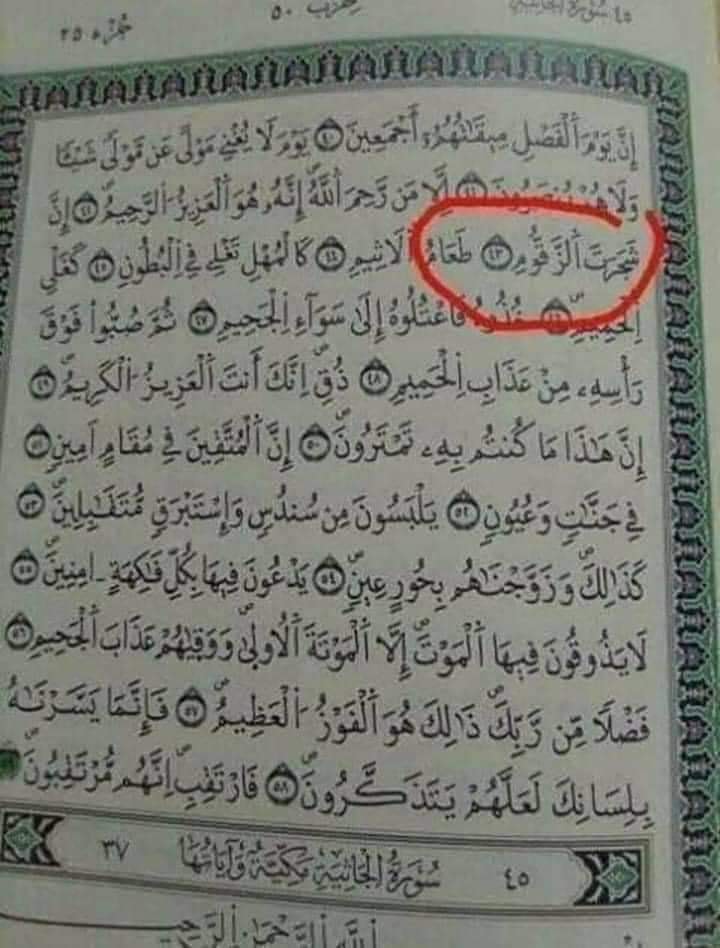 ٤٥ سُورَةُ الجَاثِيَةِ حِزْب ٥٠ جُزْء ٢٥
إِنَّ يَوْمَ ٱلْفَصْلِ مِيقَٰتُهُمُۥٓ أَجْمَعِينَ ٤٠ يَوْمَ لَا يُغْنِے مَوْلًى عَن مَّوْلًى شَيْـًٔا
وَلَا هُمْ يُنصَرُونَ ٤١ إِلَّا مَن رَّحِمَ ٱللَّهُ إِنَّهُۥ هُوَ ٱلْعَزِيزُ ٱلرَّحِيمُ ٤٢ إِنَّ
شَجَرَتَ ٱلزَّقُّومِ ٤٣ طَعَامُ ٱلَاثِيمِ ٤٤ كَالْمُهْلِ تَغْلِے فِے اِلْبُطُونِ ٤٥ كَغَلْيِ
اِلْحَمِيمِ ٤٦ خُذُوهُ فَاعْتُلُوهُ إِلَىٰ سَوَآءِ اِلْجَحِيمِ ٤٧ ثُمَّ صُبُّواْ فَوْقَ
رَأْسِهِۦ مِنْ عَذَابِ اِلْحَمِيمِ ٤٨ ذُقِ اِنَّكَ أَنتَ ٱلْعَزِيزُ ٱلْكَرِيمُ ٤٩
إِنَّ هَٰذَا مَا كُنتُم بِهِۦ تَمْتَرُونَ ٥٠ إِنَّ ٱلْمُتَّقِينَ فِے مُقَامٍ اَمِينٍ ٥١
فِے جَنَّٰتٍ وَعُيُونٍ ٥٢ يَلْبَسُونَ مِن سُندُسٍ وَإِسْتَبْرَقٍ مُّتَقَٰبِلِينَ ٥٣
كَذَٰلِكَ وَزَوَّجْنَٰهُم بِحُورٍ عِينٍ ٥٤ يَدْعُونَ فِيهَا بِكُلِّ فَٰكِهَةٍ ـ اٰمِنِينَ ٥٥
لَا يَذُوقُونَ فِيهَا ٱلْمَوْتَ إِلَّا ٱلْمَوْتَةَ ٱلُاولَىٰ وَوَقَىٰهُمْ عَذَابَ ٱلْجَحِيمِ ٥٦
فَضْلًا مِّن رَّبِّكَ ذَٰلِكَ هُوَ ٱلْفَوْزُ ٱلْعَظِيمُ ٥٧ فَإِنَّمَا يَسَّرْنَٰهُ
بِلِسَانِكَ لَعَلَّهُمْ يَتَذَكَّرُونَ ٥٨ فَارْتَقِبِ اِنَّهُم مُّرْتَقِبُونَ
٤٥ سُورَةُ الجَاثِيَةِ مَكِّيَّةٌ وَآيَاتُهَا ٣٧